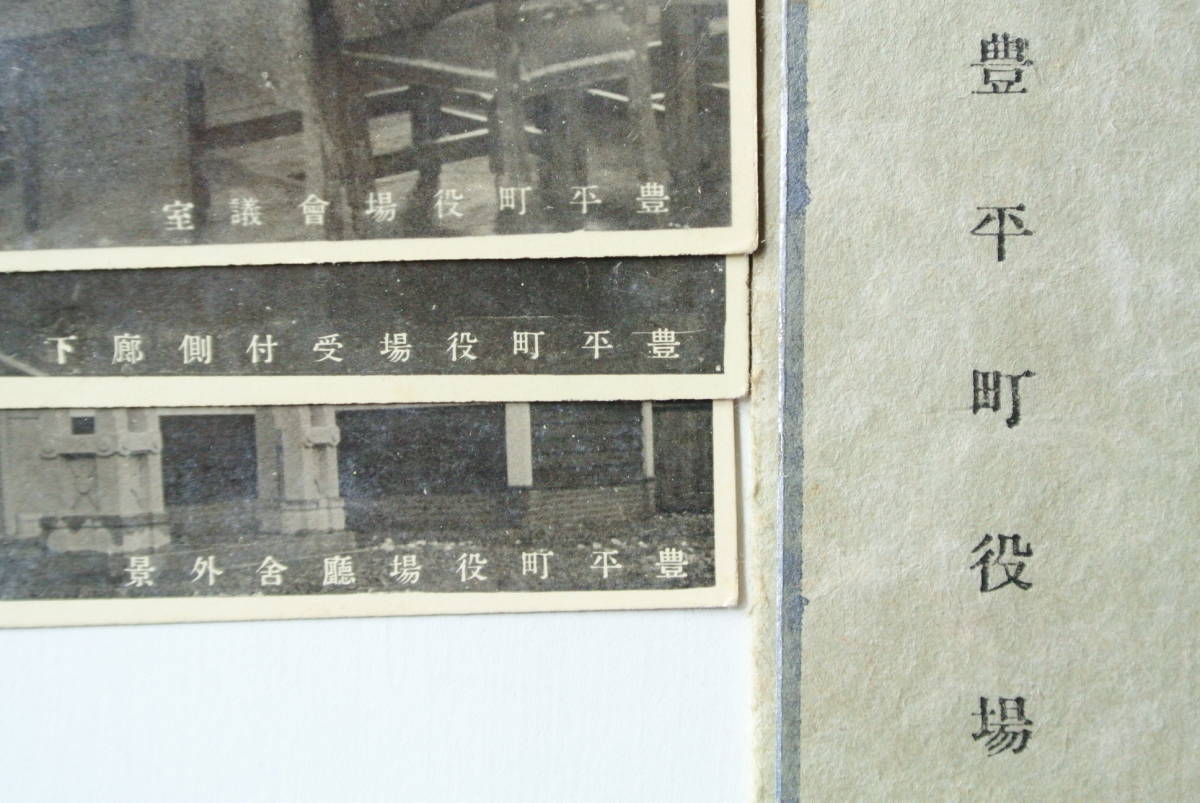 豊平町役場會議室
豊平町役場受付側廊下
豊平町役場廳舍外景
豊平町役場